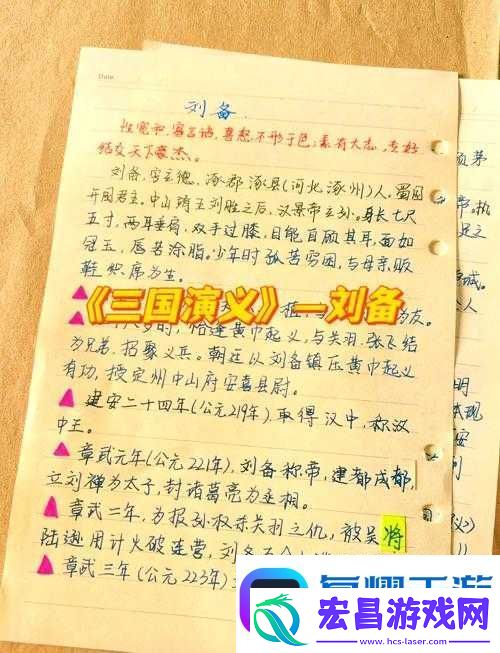 Date
刘备
性宽和,寡言语,喜怒不形于色;素有大志,专好
结交天下豪杰。
刘备,字玄德,涿郡涿县(河北涿州)人,蜀国
开国君主,中山靖王刘胜之后,汉景帝玄孙。身长七尺
五寸,两耳垂肩,双手过膝,目能自顾其耳,面如
冠玉,唇若涂脂。少年时孤苦穷困,与母亲贩
鞋织席为生。
《三国演义》—刘备
友。
恰逢黄巾起义,与关羽、张飞结
为兄弟,招聚义兵。朝廷以刘备镇压黄巾起义
有功,授定州中山府安喜县尉。
建安二十四年(公元219年),取得汉中,称汉
中王。
章武元年(公元221年),刘备称帝,建都成都,
立刘禅为太子,封诸葛亮为丞相。
章武二年,为报孙权杀关羽之仇,被吴将
陆逊用计火破连营,刘备
章武三年(公元223年)
宏昌游戏网
www.hcs-laser.com